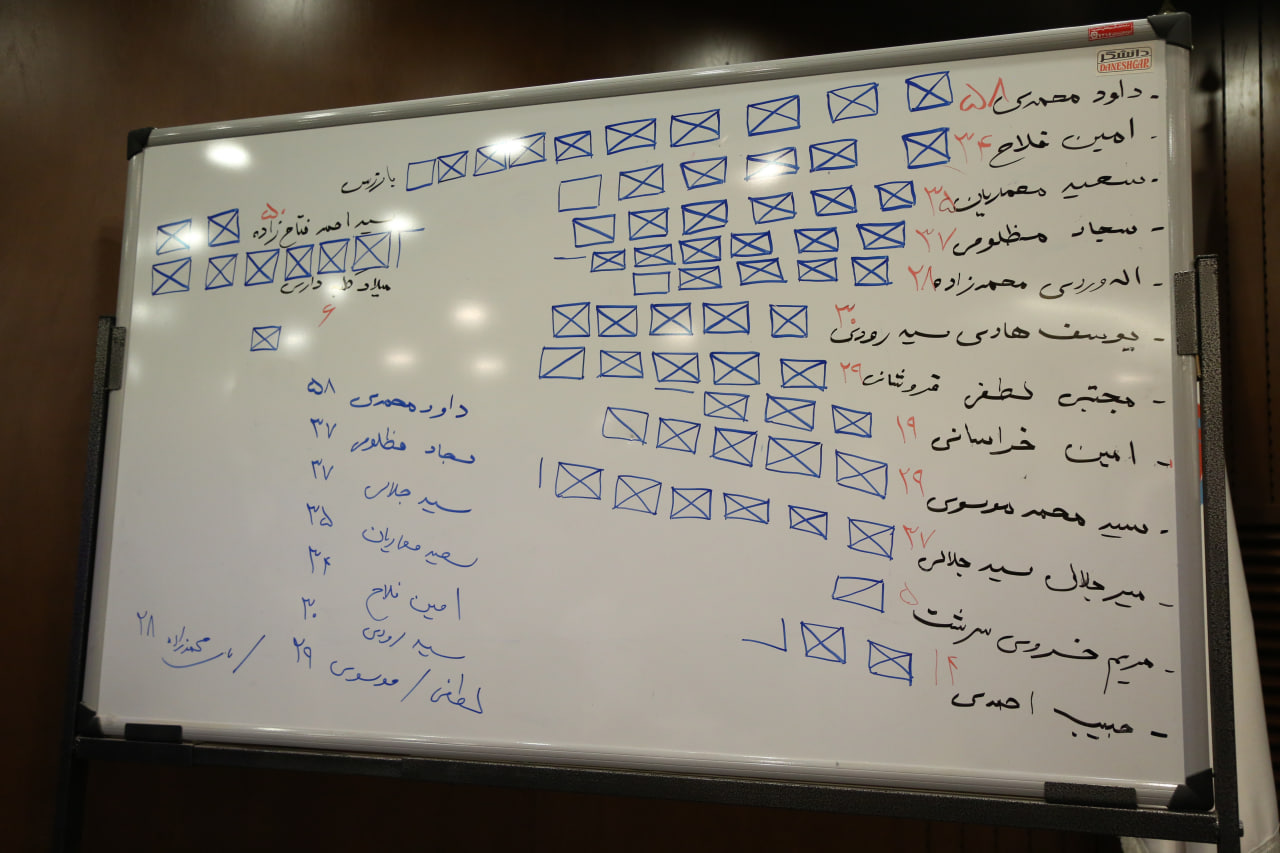 دانشگر
DANESHGAR
- داود محمدی ۵۸
- امین فلاح ۳۴
- سعید محمدیان ۳۵
- سجاد مظلومی ۳۷
- اله وردی محمدزاده ۲۸
- یوسف هادی سید رودی ۳۰
- مجتبی لطفی قزوینی ۲۹
- امین خراسانی ۱۹
- سید محمد موسوی ۲۹
- میر جلال سید جلالی ۳۷
- مریم خسروی سرشت ۵
- حبیب احمدی ۱۴
بازرس
سید احمد فتاح زاده ۵۰
میلاد ۶
داود محمدی ۵۸
سجاد مظلومی ۳۷
سید جلالی ۳۷
سعید ۳۵
امین فلاح ۳۴
سید رودی ۳۰
لطفی / موسوی ۲۹ / محمدزاده ۲۸